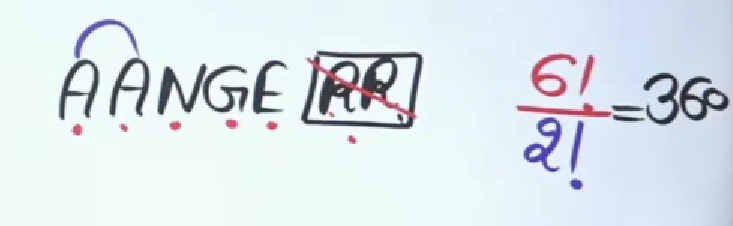 AANGE RR 6!/2! = 360